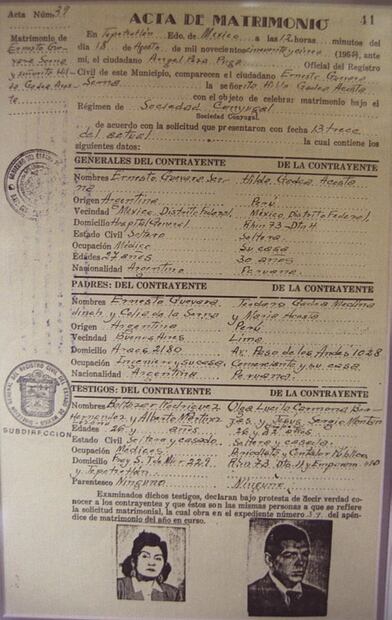 Acta Núm 39
ACTA DE MATRIMONIO
41
En Tepotzotlán Edo. de México a las 12 horas minutos del
día 18, de Agosto, de mil novecientos cincuenta y cinco
mí, el ciudadano Angel Oficial del Registro
Civil de este Municipio, comparecen el ciudadano Ernesto Guevara
Serna la señorita Hilda Gadea Acosta
con objeto de celebrar matrimonio bajo el
Régimen de Sociedad Conyugal
Sociedad Conyugal
de acuerdo con la solicitud que presentaron con fecha 13 trece
del actual la cual contiene los
siguientes datos:
Matrimonio de
Ernesto Gue-
vara Serna
GENERALES DEL CONTRAYENTE DE LA CONTRAYENTE
Nombres Ernesto Guevara Ser- Hilda Gadea Acosta
na
Origen Argentina Perú
Vecindad México, Distrito Federal México, Distrito Federal
Domicilio Hospital General Rhin 73-
Estado Civil Soltero Soltera
Ocupación Médico Su casa
Edades 27 años 30 años
Nacionalidad Argentino Peruana
PADRES: DEL CONTRAYENTE DE LA CONTRAYENTE
Nombres Ernesto Guevara Gadea
de la Serna y
Origen Argentina Perú
Vecindad Buenos Aires Lima
Domicilio Araoz 2180 1028
Ocupación Ingeniero y su casa Comerciante y su casa
Nacionalidad Argentina Peruana
TESTIGOS: DEL CONTRAYENTE DE LA CONTRAYENTE
Nombres Baltazar Rodríguez Olga Lucila Carmona
y Alberto Martínez y Jesús Sergio
Edades 26 y años 26 y años
Estado Civil Soltero y casado Soltera y
Ocupación Médicos y Contador Público
Domicilio Fray 229 Rhin 73
y Tepotzotlán
Parentesco Ninguno Ninguno
Examinados dichos testigos, declaran bajo protesta de decir verdad co-
nocer a los contrayentes y que éstos son las mismas personas a que se refiere
la solicitud matrimonial, la cual obra en el expediente número 39 del apén-
dice de matrimonio del año en curso.
SUBDIRECCION